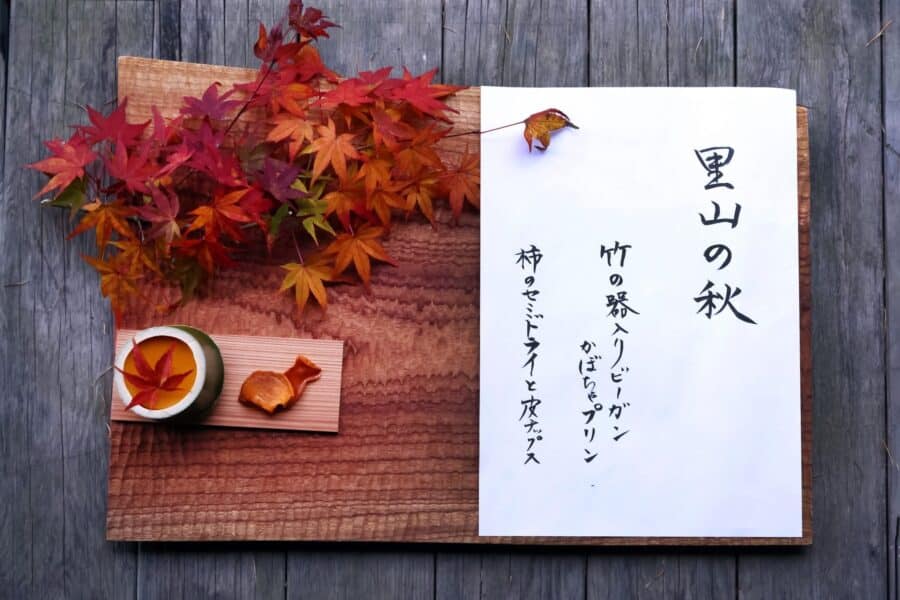 里山の秋
竹の器入りビーガン
かぼちゃプリン
柿のセミドライと皮チップス